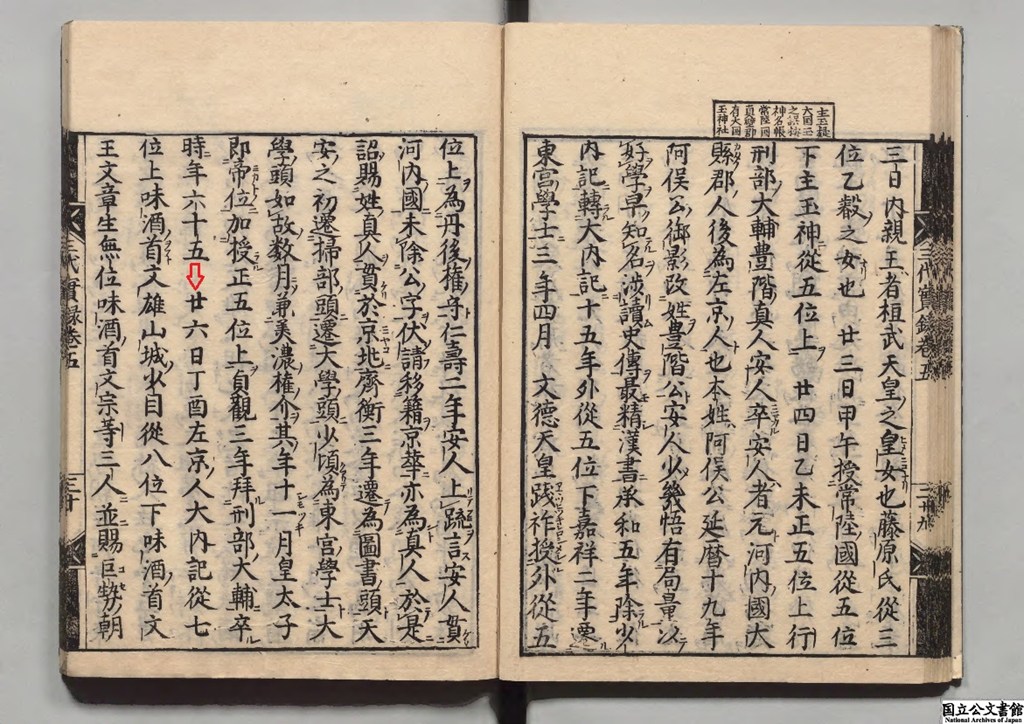 大国玉
之誤按
神名帳
常陸國
有大国
玉神社
三日内親王者桓武天皇之皇女也藤原氏從三
位乙叡之女也 廿三日甲午授常陸國從五位
下主玉神從五位上 廿四日乙未正五位上行
刑部大輔豊階真人安人卒安人者元河内國大
縣郡人後為左京人也本姓阿俣公延暦十九年
阿俣公御影改姓豊階公安人少幾悟有局量以
好學早知名渉讀史傳最精漢書承和五年除少
内記轉大内記十五年外從五位下嘉祥二年遷
東宮學士三年四月 文徳天皇踐祚授外從五
位上為丹後權守仁壽二年安人上疏言安人貫
河内國未除公字伏請移籍京華亦為真人於是
詔賜姓真人貫於京兆齊衡三年遷為圖書頭天
安之初遷掃部頭遷大學頭少頃為東宮學士大
學頭如故数月兼美濃權介其年十一月皇太子
即帝位加授正五位上貞觀三年拜刑部大輔卒
時年六十五 廿六日丁酉左京人大内記從七
位上味酒首文雄山城少目從八位下味酒首文
王文章生無位味酒首文宗等三人並賜巨勢朝
三代實録巻五
三十
三代實録巻五
二十九
国立公文書館
National Archives of Japan